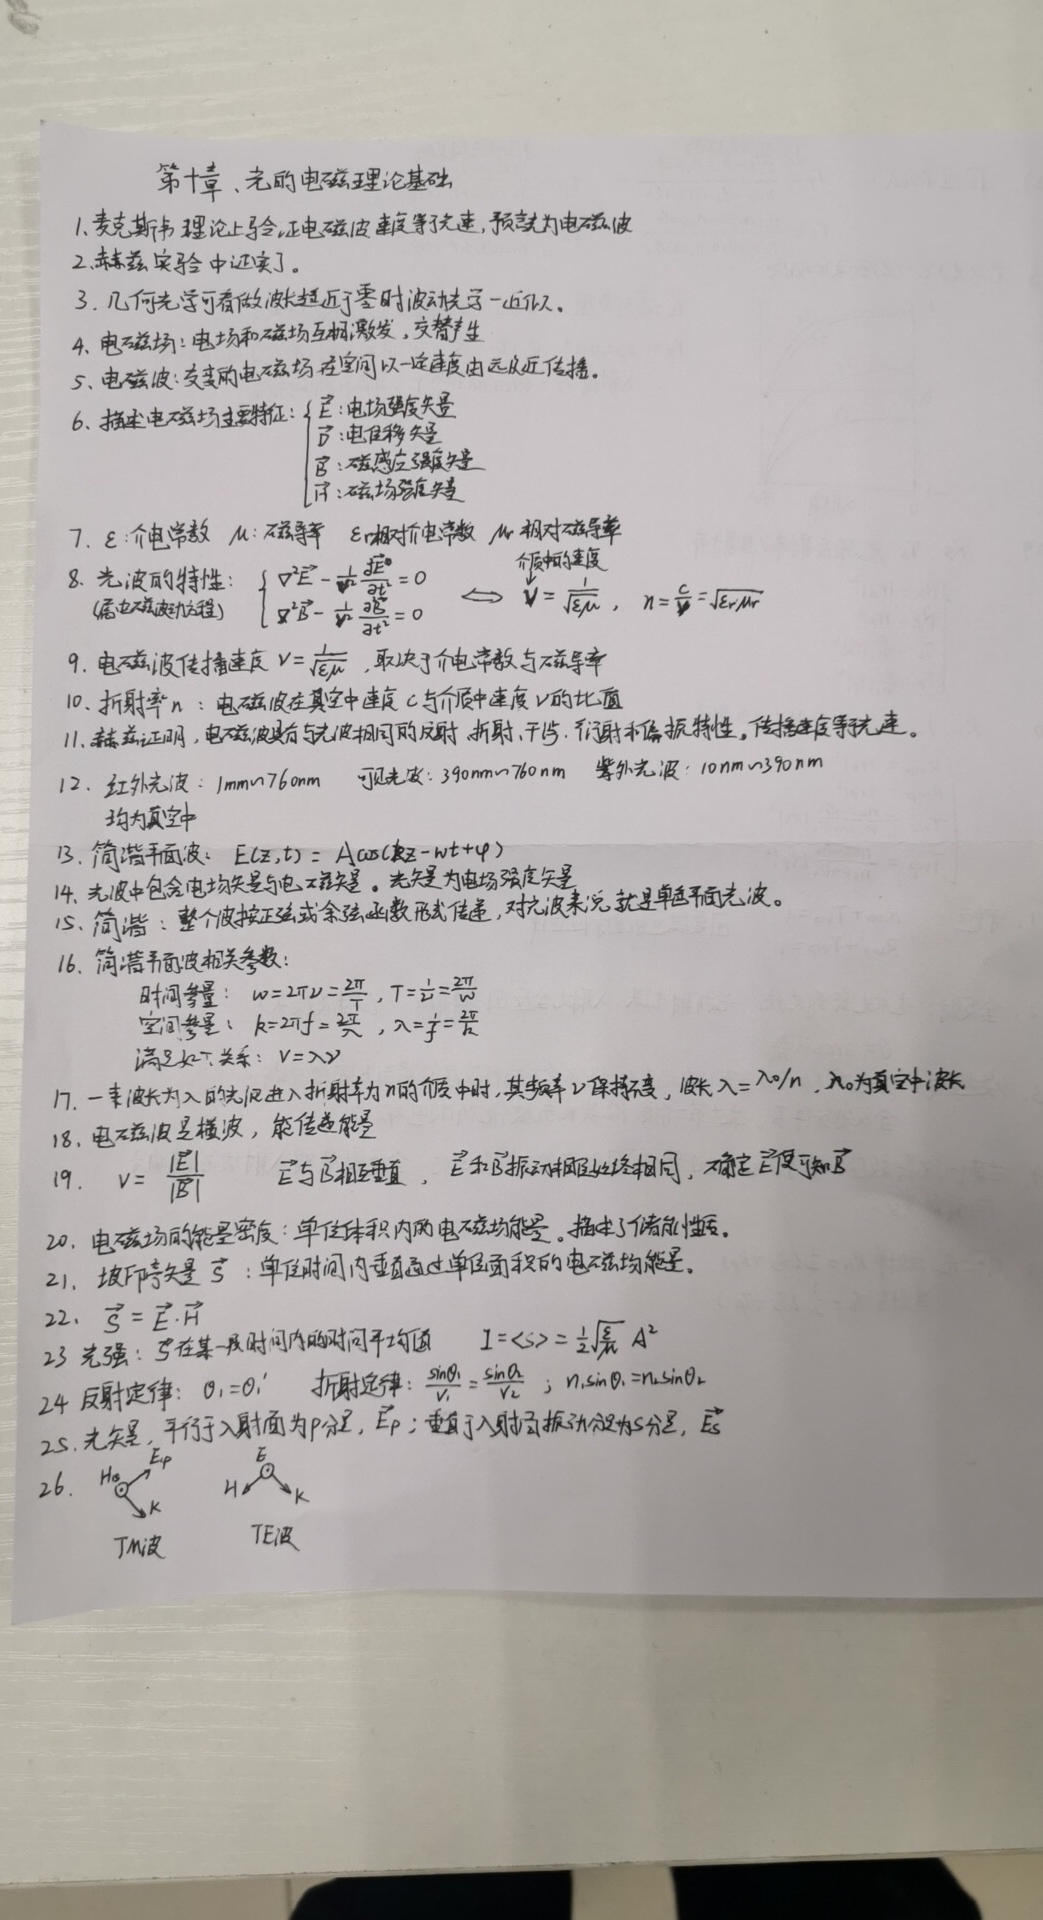 第十章、光的电磁理论基础
1.麦克斯韦理论上验证电磁波速度等于光速,预言光为电磁波
2.赫兹实验中证实了。
3.几何光学可看做波长趋近于零时波动光学一近似。
4、电磁场:电场和磁场互相激发,交替产生
5、电磁波:交变的电磁场在空间以一定速度由远及近传播。
6、描述电磁场主要特征:{E⃗:电场强度矢量
D⃗:电位移矢量
B⃗:磁感应强度矢量
H⃗:磁场强度矢量
7. ε:介电常数 μ:磁导率 εr相对介电常数 μr相对磁导率
介质中的速度
8.光波的特性:{∇²E⃗ - 1/v² ∂²E⃗/∂t² = 0
(电磁波动方程) ∇²B⃗ - 1/v² ∂²B⃗/∂t² = 0 ⇔ v = 1/√εμ, n = c/v = √εrμr
9.电磁波传播速度 v = 1/√εμ,取决于介电常数与磁导率
10.折射率n:电磁波在真空中速度c与介质中速度v的比值
11.赫兹证明,电磁波具有与光波相同的反射、折射、干涉、衍射和偏振特性。传播速度等于光速。
12.红外光波:1mm~760nm 可见光波:390nm~760nm 紫外光波:10nm~390nm
均为真空中
13.简谐平面波:E(z,t) = Acos(kz-wt+φ)
14.光波中包含电场矢量与电磁矢量。光矢量为电场强度矢量
15.简谐:整个波按正弦或余弦函数形式传递,对光波来说就是单色平面光波。
16.简谐平面波相关参数:
时间参量:w = 2πν = 2π/T, T = 1/ν = 2π/w
空间参量:k = 2πf = 2π/λ, λ = 1/f = 2π/k
满足如下关系:v = λν
17.一束波长为λ的光波进入折射率为n的介质中时,其频率ν保持不变,波长λ = λ0/n,λ0为真空中波长
18.电磁波是横波,能传递能量
19. v = |E⃗|/|B⃗| E⃗与B⃗相互垂直,E⃗和B⃗振动相位始终相同,确定E⃗便可知B⃗
20.电磁场的能量密度:单位体积内的电磁场能量。描述了储能性质。
21.坡印亭矢量S⃗:单位时间内垂直通过单位面积的电磁场能量。
22. S⃗ = E⃗·H⃗
23光强:S⃗在某一段时间内的时间平均值 I = <S> = 1/2 √ε/μ A²
24反射定律:θ1 = θ1′ 折射定律:sinθ1/v1 = sinθ2/v2; n1sinθ1 = n2sinθ2
25.光矢量,平行于入射面为P分量,E⃗p;垂直于入射面振动分量为S分量,E⃗s
26. Hs Ep K E H K
TM波 TE波